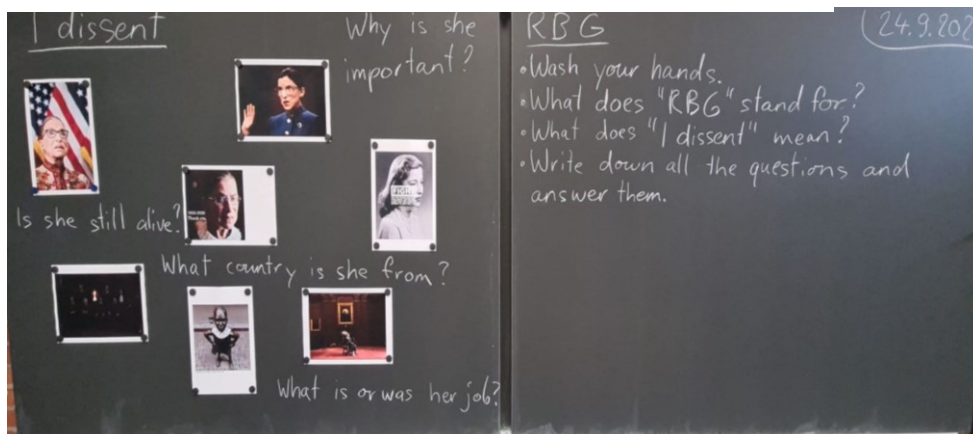 I dissent
Why is she
important?
Is she still alive?
What country is she from?
What is or was her job?
RBG
24.9.202
• Wash your hands.
• What does "RBG" stand for?
• What does "I dissent" mean?
• Write down all the questions and
answer them.